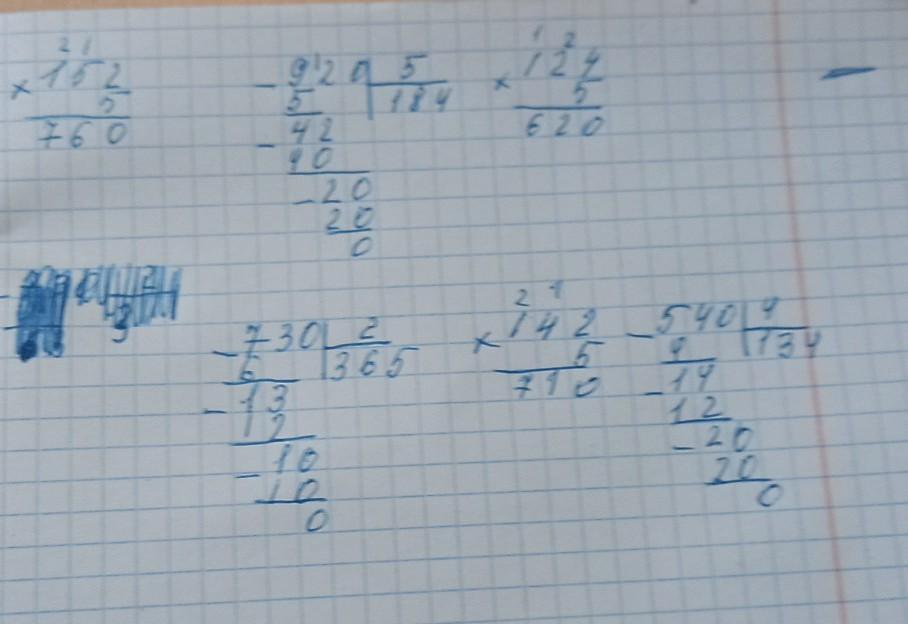 2 1
× 152
5
760
- 9 1 2 0 5
5 184
- 42
40
- 20
20
0
1 2
× 124
5
620
- 730 2
6 365
- 13
12
- 10
10
0
2 1
× 142
5
710
- 540 4
4 134
- 14
12
- 20
20
0